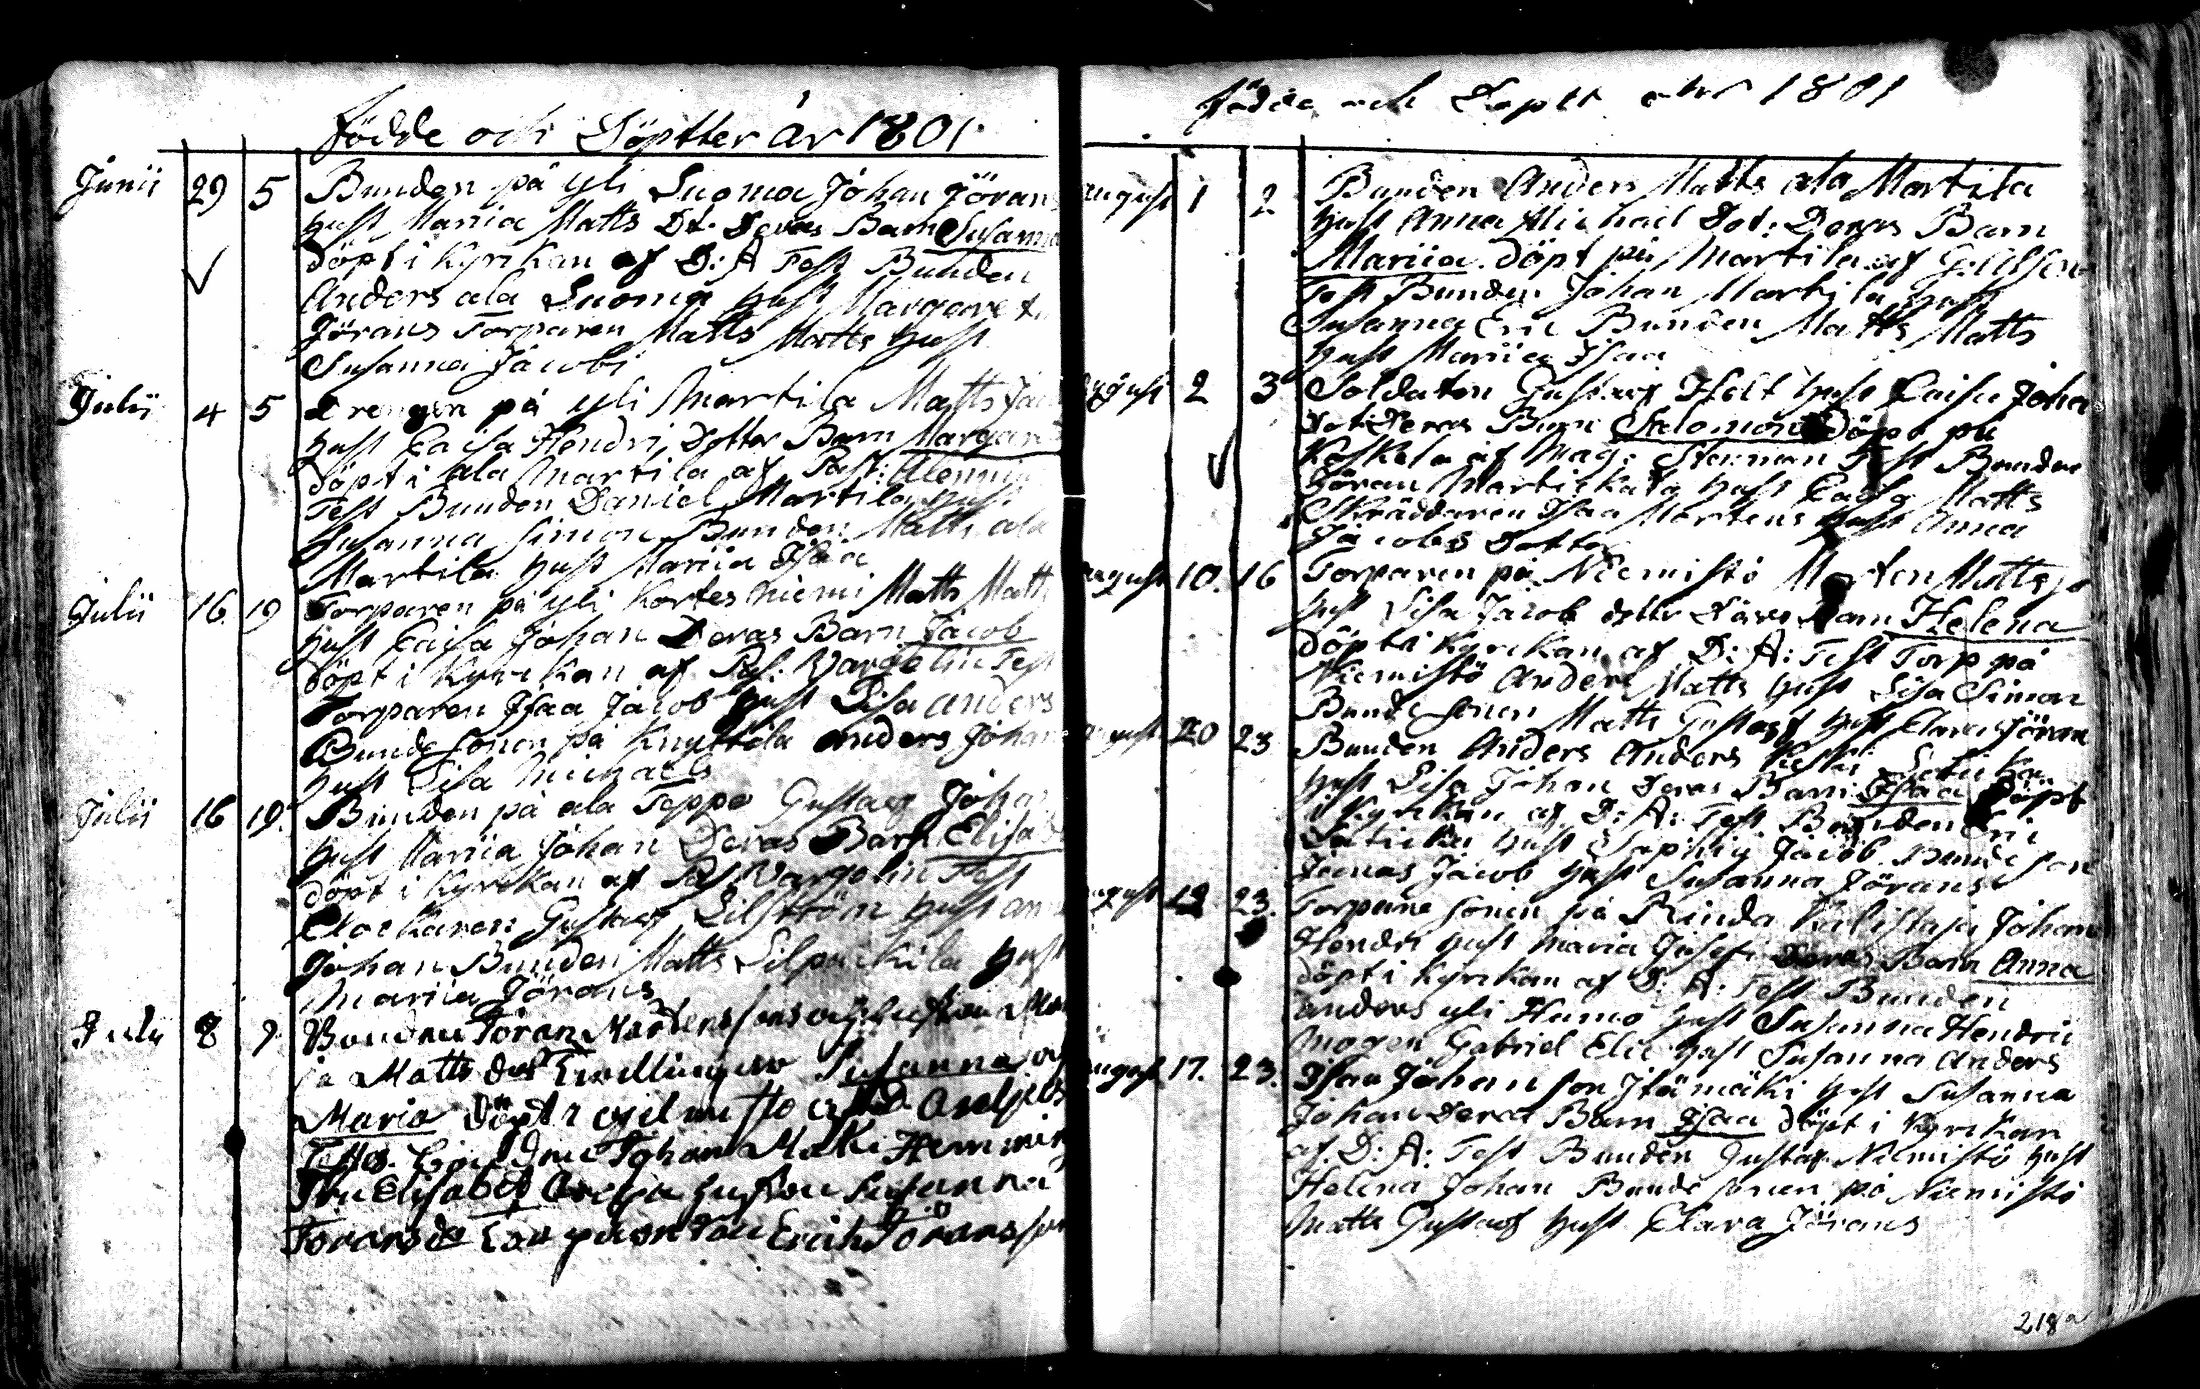 Födde och Döptter År 1801.
Junii 29 5 Bunden på yli Suoma Johan Jörans
hust Mariia Matts Dt. Deras Barn Susanna
döpt i Kyrckan af D: A Test Bunden
Anders ala Suoma hust Margaret
Jörans Torparen Matts Matts hust
Susanna Jacobi
Julii 4 5 Drengen på yli Martila Matts
hust Caisa Hendri Dotter Barn
döpt i ala Martila af Past:
Test Bunden Daniel Martila hust
Susanna Simon Bunden Matts ala
Martila hust Mariia Isaa
Julii 16. 19 Torparen på yli Kortesniemi Matts Matts
hust Caisa Johan Deras Barn Jacob
döpt i Kyrckan af Past: Vargelin Test
Torparen Isaa Jacob hust Lisa anders
Bunde sonen på Knuttila anders Johan
hust Lisa Michaels
Julii 16 19. Bunden på ala Teppo Gustaf Johan
hust Mariia Johan Deras Barn Elisa
döpt i Kyrckan af Past Vargelin Test
Clockaren Gustaf Lilström hust
Johan Bunden Matts Silpuckila hust
Mariia Jörans
July 8 9 Bonden Jöran Mårtenssons och hustru
Matts dotr Twillingar Susanna och
Maria Döpt i af
Test. Johan Maki
Elisabet hustru Susanna
Jörans d Erich Jöransson
födde och Döpt 1801
august 1 2 Bunden Anders Matts ala Martila
hust Anna Michail Dot: Deras Barn
Mariia. döpt på Martila af
Test Bunden Johan Martila, hust
Susanna Eric Bunden Matts Matts
hust Mariia Isaa
august 2 3 Soldaten Gustaf Helt hust Caisa Johan
Dot: Deras Barn Salomon Döpt på
Koskela af Mag: Stenman Test Bunden
Jöran Martickala hust Caisa Matts
Skräddaren Isaa Martens hust Anna
Jacobs Dotter
august 10. 16 Torparen på Niemistö Morten Matts
hust Lisa Jacob dotter Deras Barn Helena
döpt i Kyrckan af D: A: Test Torp på
Niemistö Anders Matts hust Lisa Simon
Bunde sonen Matts Gustaf hust Clara Jöran
august 20 23 Bunden Anders Anders Keski
hust Lisa Johan Deras Barn Isaa Döpt
i Kyrckan af D: A: Test Bunden Eri
hust Jacob. Bunde son
Jonas Jacob hust Susanna Jörans
august 19 23. Torpare sonen på Rinda Johan
Hendri hust Maria Deras Barn Anna
döpt i Kyrckan af D: A: Test Bunden
anders yli Humo hust Susanna Hendric
Mågen Gabriel Elie hust Susanna Anders
august 17. 23. Isaa Johan son Itämäki hust Susanna
Johan Deras Barn Isaa döpt i Kyrckan
af. D: A: Test Bunden Gustaf Niemistö hust
Helena Johan Bunde sonen på Niemistö
Matts Gustaf hust Clara Jörans
218